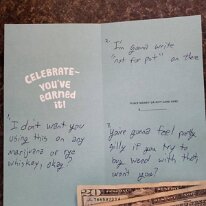 CELEBRATE-
YOU'VE
EARNED
IT!
1. I don't want you
using this on any
marijuana or rye
whiskey, okay?
2. I'm gonna write
"not for pot" on there
PLACE MONEY OR GIFT CARD HERE
3. you're gonna feel pretty
silly if you try to
buy weed with that,
won't you?
20